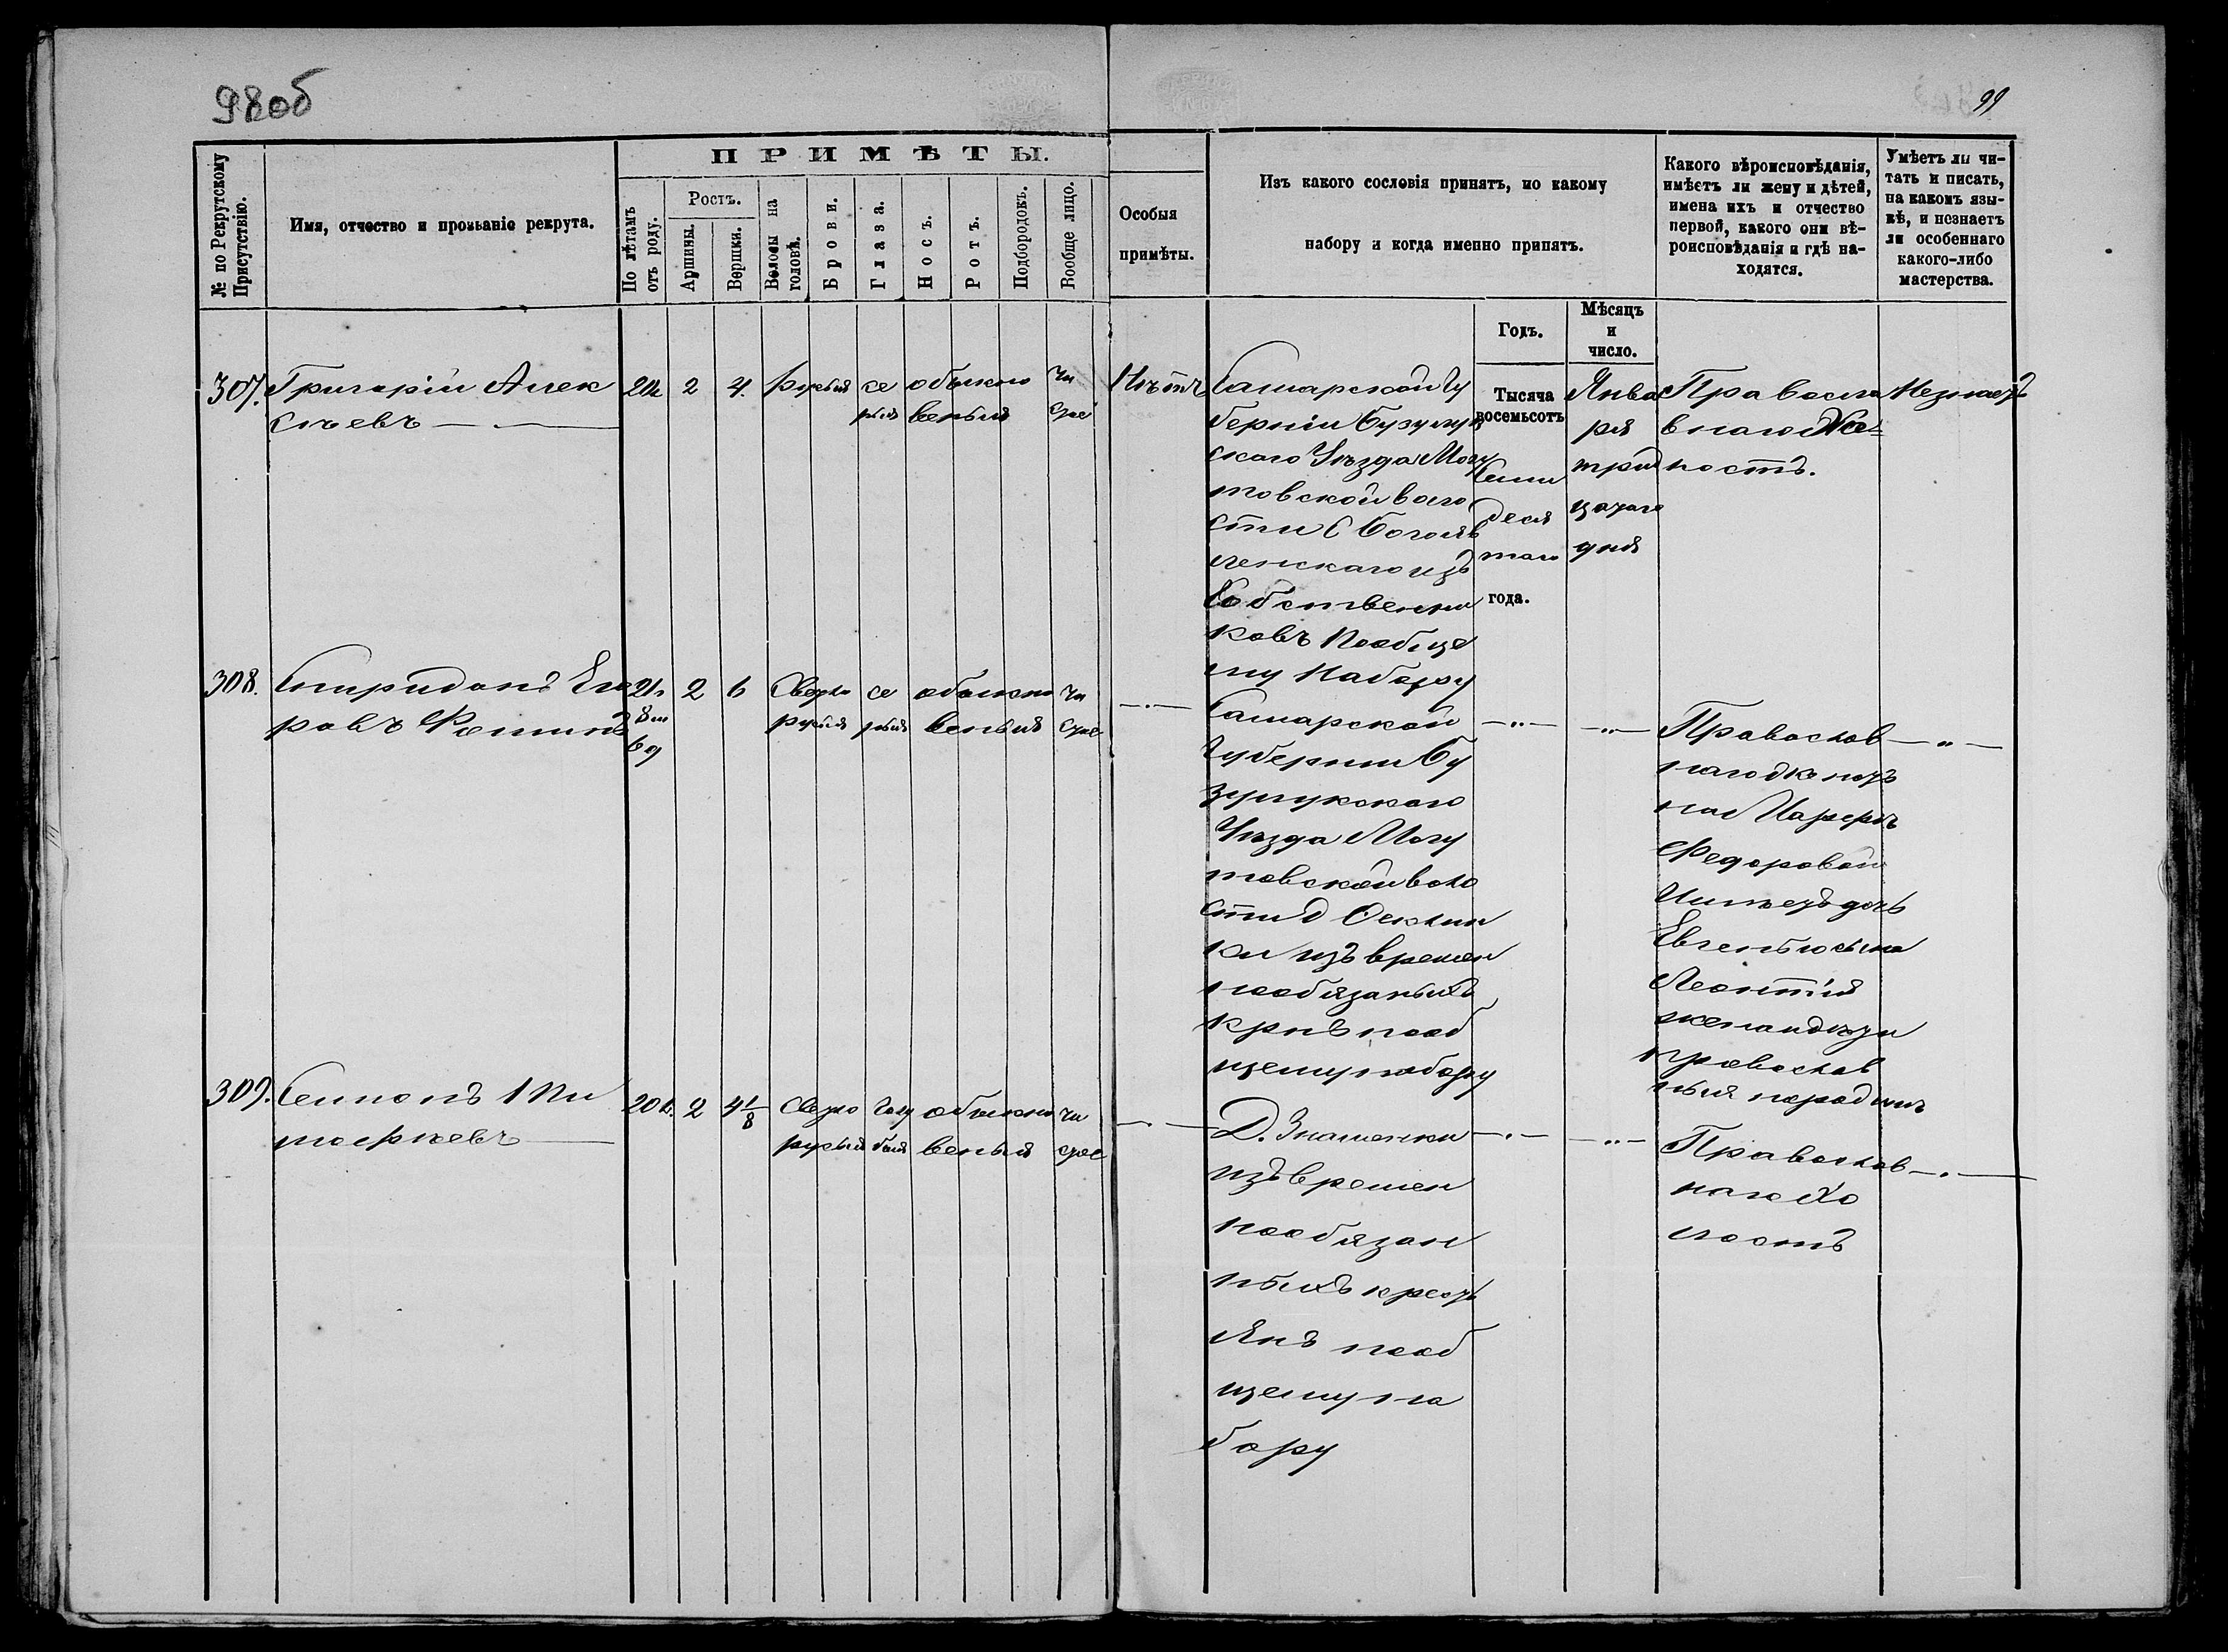 98об
99
№ по Рекрутскому
Присутствію.
Имя, отчество и прозваніе рекрута.
ПРИМѢТЫ.
По лѣтамъ
отъ роду.
Ростъ.
Аршины.
Вершки.
Волосы на
головѣ.
Брови.
Глаза.
Носъ.
Ротъ.
Подбородокъ.
Вообще лицо.
Особыя
примѣты.
Изъ какого сословія принятъ, по какому
набору и когда именно принятъ.
Какого вѣроисповѣданія,
имѣетъ ли жену и дѣтей,
имена ихъ и отчество
первой, какого они вѣ-
роисповѣданія и гдѣ на-
ходятся.
Умѣетъ ли чи-
тать и писать,
на какомъ язы-
кѣ, и незнаетъ
ли особеннаго
какого-либо
мастерства.
Годъ.
Мѣсяцъ
и
число.
307.
Григорій Алек
сѣевъ
2
4.
русыя
се
рыя
обыкно
веныя
чи
стое
Нѣтъ
Самарской Гу
берніи Бузулук
скаго Уѣзда Могу
товской воло
сти С Богояв
ленскаго изъ
Собственни
ковъ Пообще
му Набору
Тысяча
восемьсотъ
Семи
деся
таго
года.
Янва
ря
трид
цатаго
дня
Православ
наго Хо
лостъ.
Незнаетъ
308.
Спиридонъ Его
ровъ Фоминъ
21
2
6
Светло
русыя
се
рыя
обыкно
веныя
чи
стое
Самарской
Губерніи Бу
зулукскаго
Уѣзда Могу
товской воло
сти д
ки изъ времен
нообязаныхъ
крнъ пооб
щему набору
Православ
наго женатъ
на
Федоровой
Имѣетъ дочь
Евгенью сына
Леонтія
жена и дѣти
православ
ныя на родинѣ
309.
Семионъ Ти
мофеевъ
20
2
4 1/8
Светло
русыя
голу
быя
обыкно
веныя
чи
стое
Д. Знаменки
изъ времен
нообязан
ныхъ кресть
янъ пооб
щему на
бору
Православ
наго Хо
лостъ